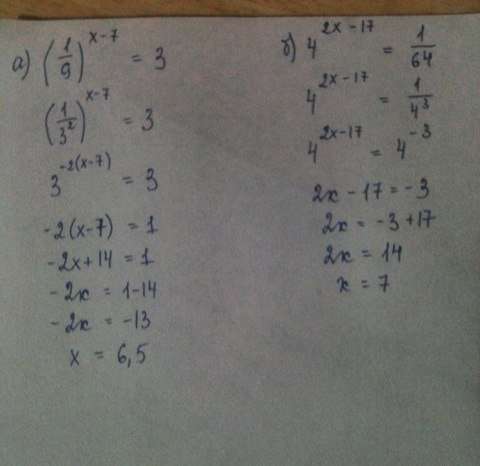 а) (1/9)^(x-7) = 3
(1/3²)^(x-7) = 3
3^(-2(x-7)) = 3
-2(x-7) = 1
-2x+14 = 1
-2x = 1-14
-2x = -13
x = 6,5
б) 4^(2x-17) = 1/64
4^(2x-17) = 1/4³
4^(2x-17) = 4^(-3)
2x - 17 = -3
2x = -3+17
2x = 14
x = 7